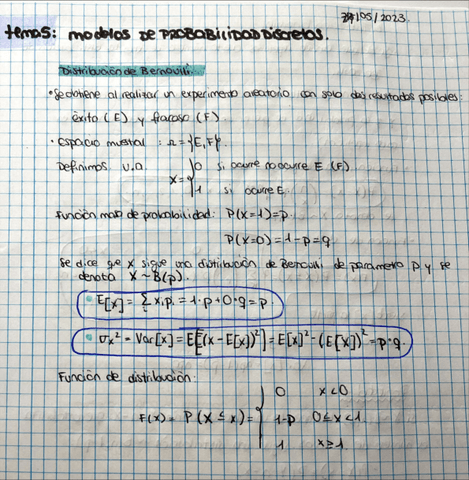 /05/2023.
tema 5: modelos de PROBABILIDAD DISCRETOS.
Distribución de Bernouilli.
• Se obtiene al realizar un experimento aleatorio con solo dos resultados posibles:
éxito (E) y fracaso (F)
• Espacio muestral : Ω = {E, F}
Definimos v.a. X = { 0 si ocurre no ocurre E (F)
1 si ocurre E.
Función masa de probabilidad: P(X=1)=p.
P(X=0)=1-p=q
Se dice que X sigue una distribución de Bernouilli de parametro p y se
denota X~B(p).
• E[X] = Σ xᵢ pᵢ = 1·p + 0·q = p.
• σx² = Var[X] = E[(X - E[X])²] = E[X]² - (E[X])² = p·q.
Función de distribución:
0 x<0
F(x) = P(X ≤ x) = { 1-p 0≤x<1
1 x≥1.